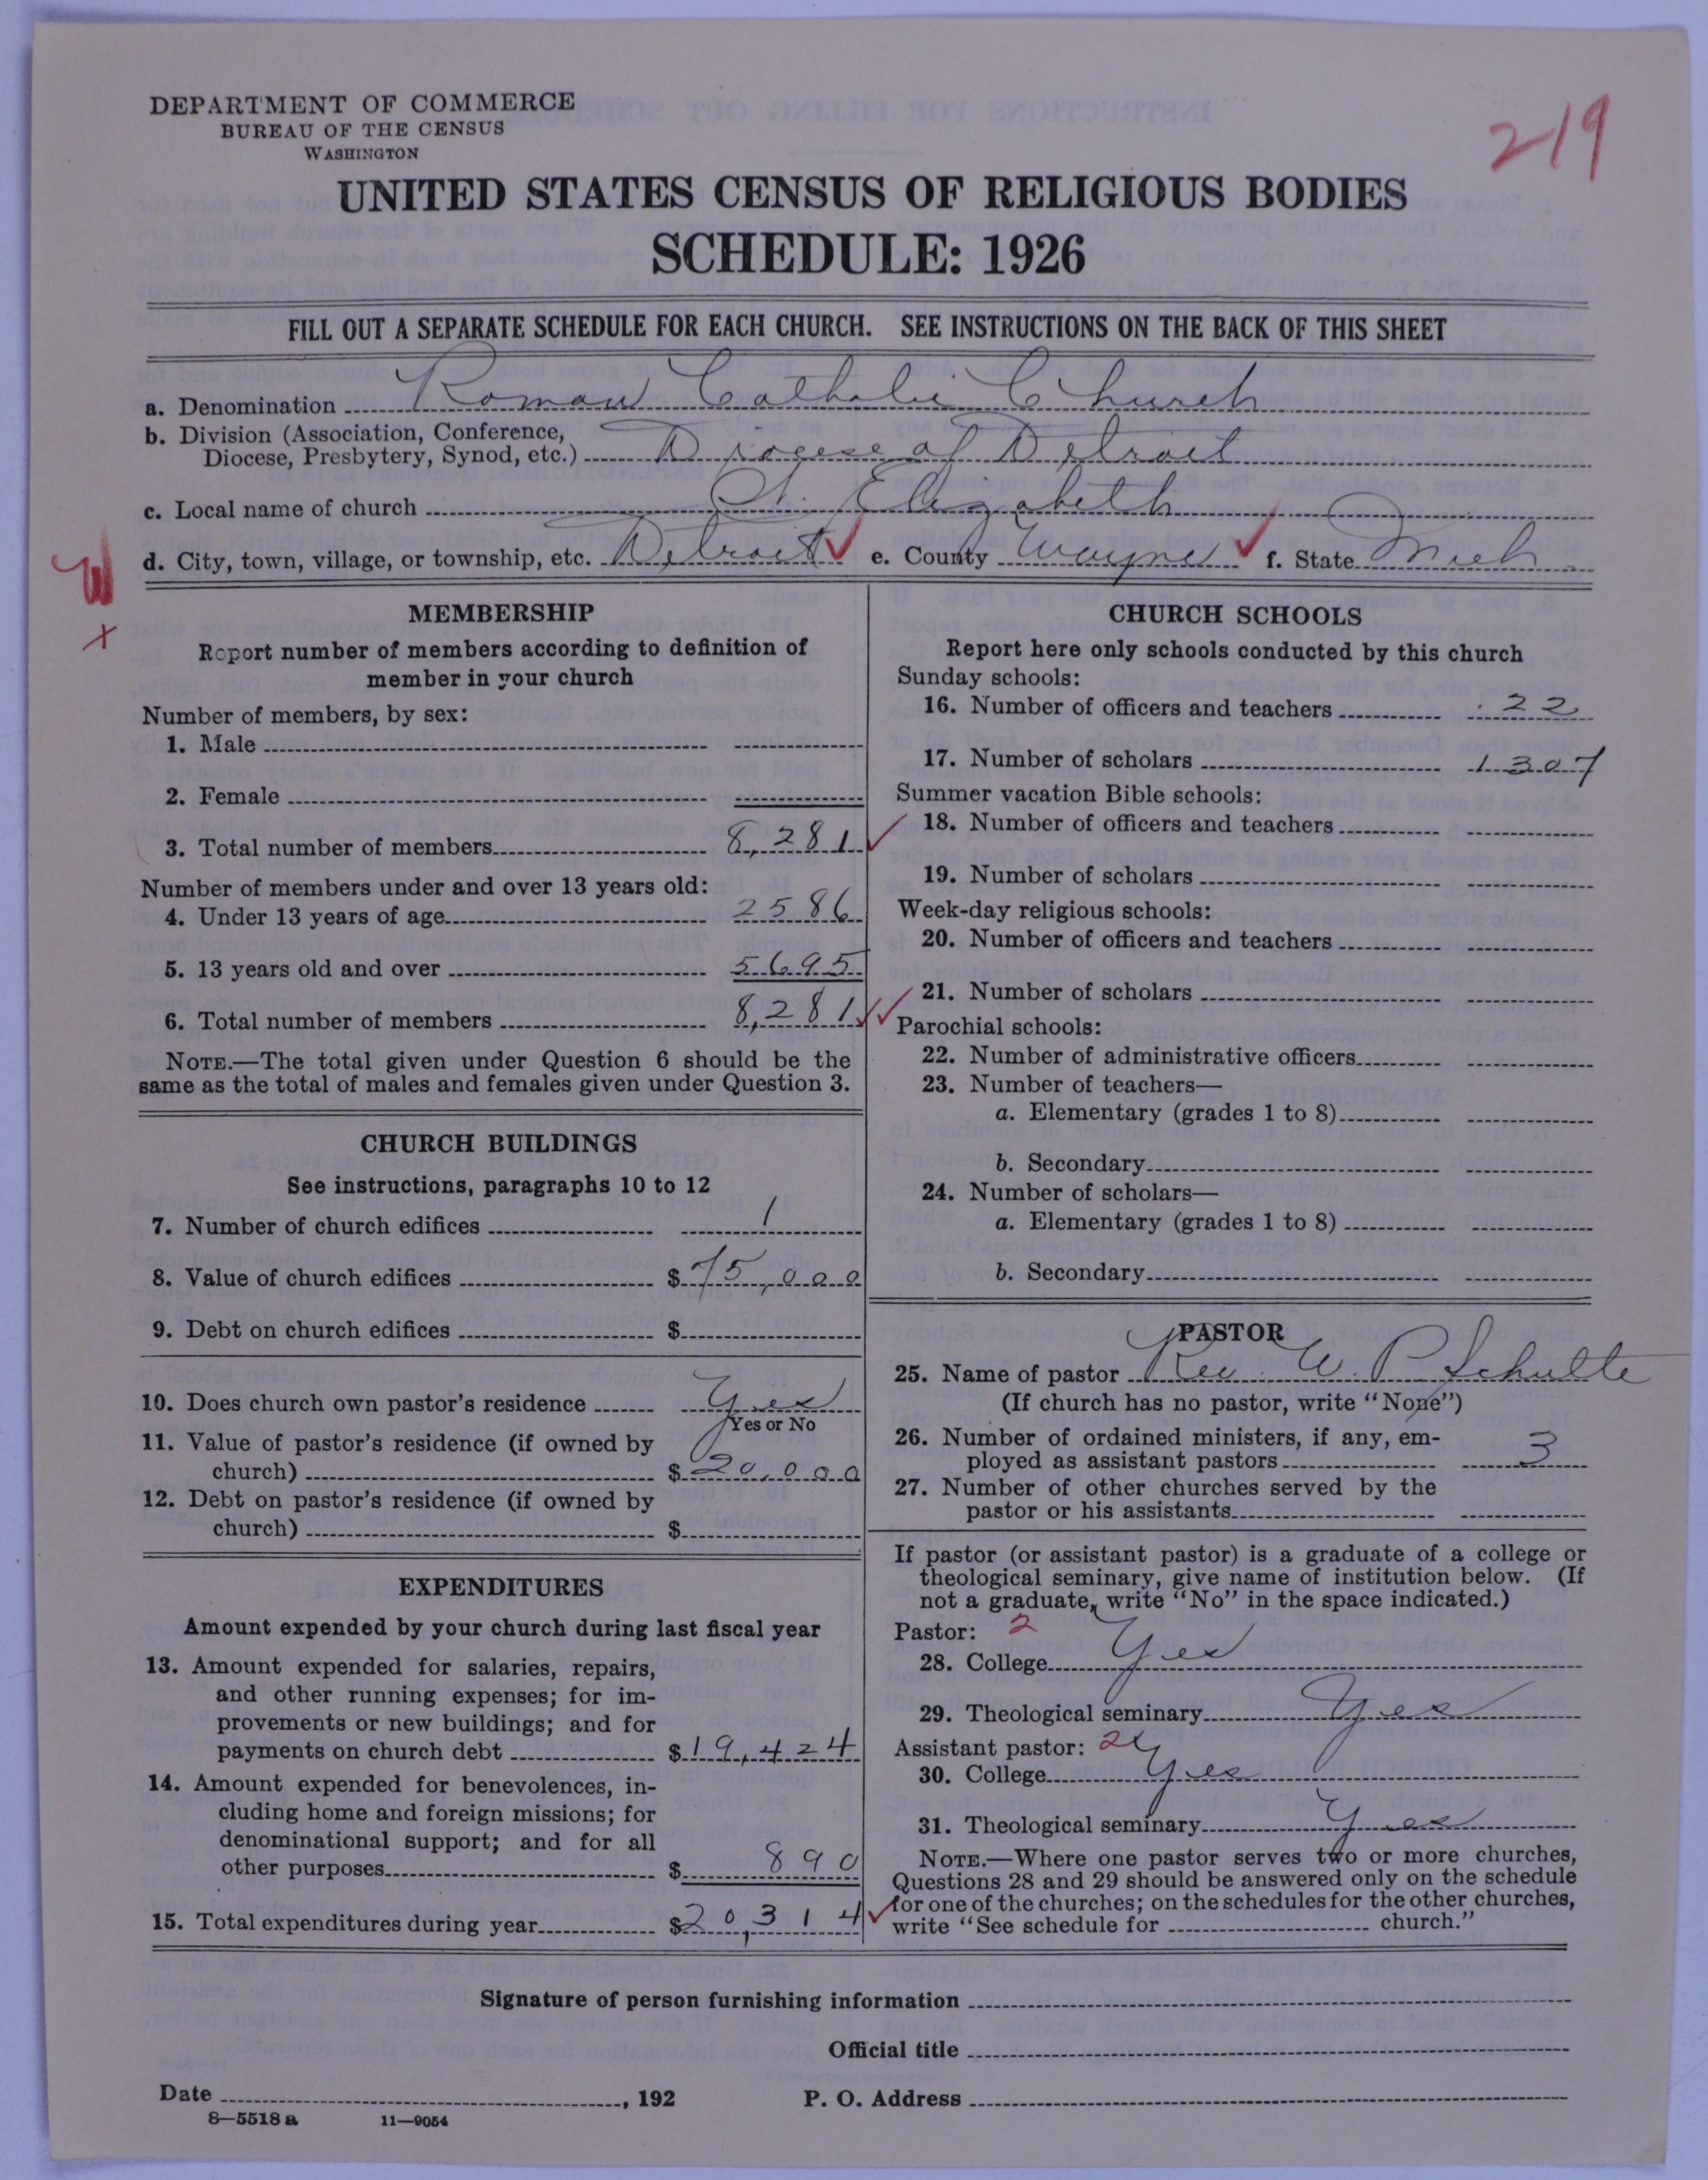 DEPARTMENT OF COMMERCE
BUREAU OF THE CENSUS
WASHINGTON
219
UNITED STATES CENSUS OF RELIGIOUS BODIES
SCHEDULE: 1926
FILL OUT A SEPARATE SCHEDULE FOR EACH CHURCH. SEE INSTRUCTIONS ON THE BACK OF THIS SHEET
a. Denomination Roman Catholic Church
b. Division (Association, Conference,
Diocese, Presbytery, Synod, etc.) Diocese of Detroit
c. Local name of church St. Elizabeth
d. City, town, village, or township, etc. Detroit e. County Wayne f. State Mich.
W
x
MEMBERSHIP
Report number of members according to definition of
member in your church
Number of members, by sex:
1. Male
2. Female
3. Total number of members 8,281
Number of members under and over 13 years old:
4. Under 13 years of age 2586
5. 13 years old and over 5695
6. Total number of members 8,281
NOTE.—The total given under Question 6 should be the
same as the total of males and females given under Question 3.
CHURCH BUILDINGS
See instructions, paragraphs 10 to 12
7. Number of church edifices 1
8. Value of church edifices $ 75,000
9. Debt on church edifices $
10. Does church own pastor's residence Yes
Yes or No
11. Value of pastor's residence (if owned by
church) $ 20,000
12. Debt on pastor's residence (if owned by
church) $
EXPENDITURES
Amount expended by your church during last fiscal year
13. Amount expended for salaries, repairs,
and other running expenses; for im-
provements or new buildings; and for
payments on church debt $ 19,424
14. Amount expended for benevolences, in-
cluding home and foreign missions; for
denominational support; and for all
other purposes $ 890
15. Total expenditures during year $ 20,314
CHURCH SCHOOLS
Report here only schools conducted by this church
Sunday schools:
16. Number of officers and teachers 22
17. Number of scholars 1307
Summer vacation Bible schools:
18. Number of officers and teachers
19. Number of scholars
Week-day religious schools:
20. Number of officers and teachers
21. Number of scholars
Parochial schools:
22. Number of administrative officers
23. Number of teachers—
a. Elementary (grades 1 to 8)
b. Secondary
24. Number of scholars—
a. Elementary (grades 1 to 8)
b. Secondary
PASTOR
25. Name of pastor Rev. W. P. Schulte
(If church has no pastor, write "None")
26. Number of ordained ministers, if any, em-
ployed as assistant pastors 3
27. Number of other churches served by the
pastor or his assistants
If pastor (or assistant pastor) is a graduate of a college or
theological seminary, give name of institution below. (If
not a graduate, write "No" in the space indicated.)
Pastor: 2
28. College Yes
29. Theological seminary Yes
Assistant pastor: 2
30. College Yes
31. Theological seminary Yes
NOTE.—Where one pastor serves two or more churches,
Questions 28 and 29 should be answered only on the schedule
for one of the churches; on the schedules for the other churches,
write "See schedule for church."
Signature of person furnishing information
Official title
Date , 192 P. O. Address
8—5518 a 11—9054